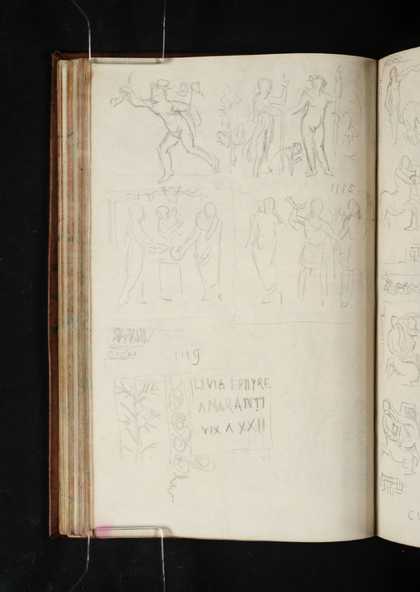 1115
1119
LIVIA EPHYRE
AMARANTI
VIX A XXII
C